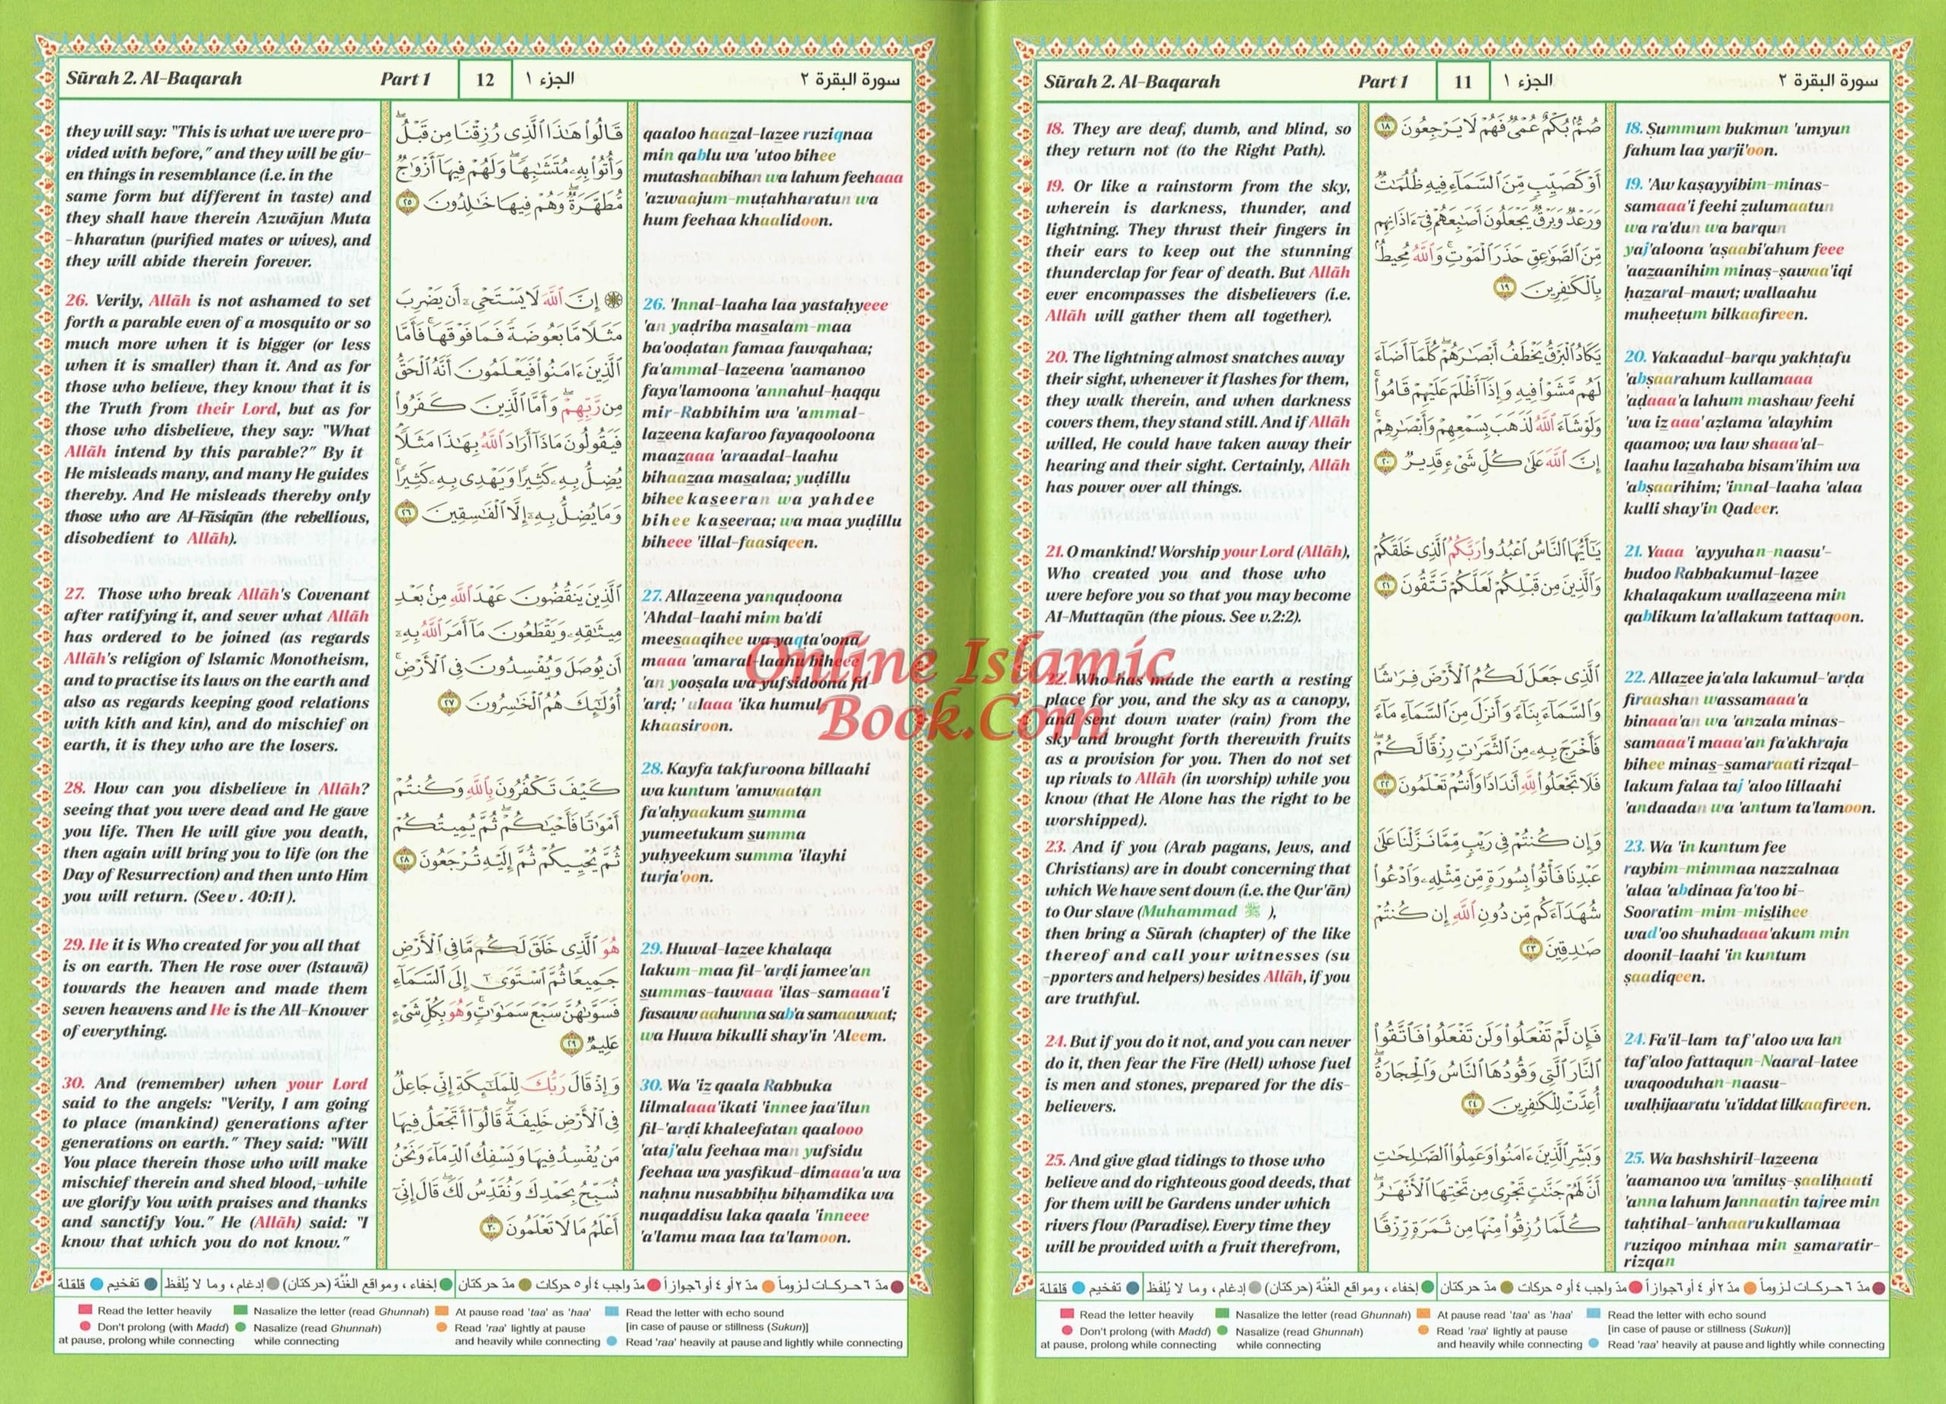 Sūrah 2. Al-Baqarah
Part 1
11
الجزء ١
سورة البقرة ٢
18. They are deaf, dumb, and blind, so
they return not (to the Right Path).
19. Or like a rainstorm from the sky,
wherein is darkness, thunder, and
lightning. They thrust their fingers in
their ears to keep out the stunning
thunderclap for fear of death. But Allāh
ever encompasses the disbelievers (i.e.
Allāh will gather them all together).
20. The lightning almost snatches away
their sight, whenever it flashes for them,
they walk therein, and when darkness
covers them, they stand still. And if Allāh
willed, He could have taken away their
hearing and their sight. Certainly, Allāh
has power over all things.
21. O mankind! Worship your Lord (Allāh),
Who created you and those who
were before you so that you may become
Al-Muttaqūn (the pious. See v.2:2).
22. Who has made the earth a resting
place for you, and the sky as a canopy,
and sent down water (rain) from the
sky and brought forth therewith fruits
as a provision for you. Then do not set
up rivals to Allāh (in worship) while you
know (that He Alone has the right to be
worshipped).
23. And if you (Arab pagans, Jews, and
Christians) are in doubt concerning that
which We have sent down (i.e. the Qur'ān)
to Our slave (Muhammad ﷺ ),
then bring a Sūrah (chapter) of the like
thereof and call your witnesses (su
-pporters and helpers) besides Allāh, if you
are truthful.
24. But if you do it not, and you can never
do it, then fear the Fire (Hell) whose fuel
is men and stones, prepared for the dis-
believers.
25. And give glad tidings to those who
believe and do righteous good deeds, that
for them will be Gardens under which
rivers flow (Paradise). Every time they
will be provided with a fruit therefrom,
صُمُّۢ بُكْمٌ عُمْيٌ فَهُمْ لَا يَرْجِعُونَ ١٨
أَوْ كَصَيِّبٍ مِّنَ ٱلسَّمَآءِ فِيهِ ظُلُمَـٰتٌ
وَرَعْدٌ وَبَرْقٌ يَجْعَلُونَ أَصَـٰبِعَهُمْ فِىٓ ءَاذَانِهِم
مِّنَ ٱلصَّوَٰعِقِ حَذَرَ ٱلْمَوْتِ ۚ وَٱللَّهُ مُحِيطٌۢ
بِٱلْكَـٰفِرِينَ ١٩
يَكَادُ ٱلْبَرْقُ يَخْطَفُ أَبْصَـٰرَهُمْ ۖ كُلَّمَآ أَضَآءَ
لَهُم مَّشَوْا۟ فِيهِ وَإِذَآ أَظْلَمَ عَلَيْهِمْ قَامُوا۟ ۚ
وَلَوْ شَآءَ ٱللَّهُ لَذَهَبَ بِسَمْعِهِمْ وَأَبْصَـٰرِهِمْ ۚ
إِنَّ ٱللَّهَ عَلَىٰ كُلِّ شَىْءٍ قَدِيرٌ ٢٠
يَـٰٓأَيُّهَا ٱلنَّاسُ ٱعْبُدُوا۟ رَبَّكُمُ ٱلَّذِى خَلَقَكُمْ
وَٱلَّذِينَ مِن قَبْلِكُمْ لَعَلَّكُمْ تَتَّقُونَ ٢١
ٱلَّذِى جَعَلَ لَكُمُ ٱلْأَرْضَ فِرَٰشًا
وَٱلسَّمَآءَ بِنَآءً وَأَنزَلَ مِنَ ٱلسَّمَآءِ مَآءً
فَأَخْرَجَ بِهِۦ مِنَ ٱلثَّمَرَٰتِ رِزْقًا لَّكُمْ ۖ
فَلَا تَجْعَلُوا۟ لِلَّهِ أَندَادًا وَأَنتُمْ تَعْلَمُونَ ٢٢
وَإِن كُنتُمْ فِى رَيْبٍ مِّمَّا نَزَّلْنَا عَلَىٰ
عَبْدِنَا فَأْتُوا۟ بِسُورَةٍ مِّن مِّثْلِهِۦ وَٱدْعُوا۟
شُهَدَآءَكُم مِّن دُونِ ٱللَّهِ إِن كُنتُمْ
صَـٰدِقِينَ ٢٣
فَإِن لَّمْ تَفْعَلُوا۟ وَلَن تَفْعَلُوا۟ فَٱتَّقُوا۟
ٱلنَّارَ ٱلَّتِى وَقُودُهَا ٱلنَّاسُ وَٱلْحِجَارَةُ ۖ
أُعِدَّتْ لِلْكَـٰفِرِينَ ٢٤
وَبَشِّرِ ٱلَّذِينَ ءَامَنُوا۟ وَعَمِلُوا۟ ٱلصَّـٰلِحَـٰتِ
أَنَّ لَهُمْ جَنَّـٰتٍ تَجْرِى مِن تَحْتِهَا ٱلْأَنْهَـٰرُ ۖ
كُلَّمَا رُزِقُوا۟ مِنْهَا مِن ثَمَرَةٍ رِّزْقًا
18. Ṣummum bukmun 'umyun
fahum laa yarji'oon.
19. 'Aw kaṣayyibim-minas-
samaaa'i feehi ẓulumaatun
wa ra'dun wa barqun
yaj'aloona 'aṣaabi'ahum feee
'aazaanihim minaṣ-ṣawaa'iqi
ḥazaral-mawt; wallaahu
muḥeeṭum bilkaafireen.
20. Yakaadul-barqu yakhṭafu
'abṣaarahum kullamaaa
'aḍaaa'a lahum mashaw feehi
'wa iz aaa' aẓlama 'alayhim
qaamoo; wa law shaaa'al-
laahu lazahaba bisam'ihim wa
'abṣaarihim; 'innal-laaha 'alaa
kulli shay'in Qadeer.
21. Yaaa 'ayyuhan-naasu'-
budoo Rabbakumul-lazee
khalaqakum wallazeena min
qablikum la'allakum tattaqoon.
22. Allazee ja'ala lakumul-'arḍa
firaashan wassamaaa'a
binaaa'an wa 'anzala minas-
samaaa'i maaa'an fa'akhraja
bihee minas-samaraati rizqal-
lakum falaa taj 'aloo lillaahi
'andaadan wa 'antum ta'lamoon.
23. Wa 'in kuntum fee
raybim-mimmaa nazzalnaa
'alaa 'abdinaa fa'too bi-
Sooratim-mim-mislihee
wad'oo shuhadaaa'akum min
doonil-laahi 'in kuntum
ṣaadiqeen.
24. Fa'il-lam taf'aloo wa lan
taf'aloo fattaqun-Naaral-latee
waqooduhan-naasu-
walḥijaaratu 'u'iddat lilkaafireen.
25. Wa bashshiril-lazeena
'aamanoo wa 'amiluṣ-ṣaaliḥaati
'anna lahum Jannaatin tajree min
taḥtihal-'anhaaru kullamaa
ruziqoo minhaa min samaratir-
rizqan
مدّ ٦ حركـات لـزوماً
مدّ ٢ أو ٤ أو ٦ جوازاً
مدّ واجب ٤ أو ٥ حركات
مدّ حركتان
إخفاء ، ومواقع الغُنَّة (حركتان)
إدغام ، وما لا يُلفَظ
تفخيم
قلقلة
Read the letter heavily
Don't prolong (with Madd)
at pause, prolong while connecting
Nasalize the letter (read Ghunnah)
Nasalize (read Ghunnah)
while connecting
At pause read 'taa' as 'haa'
Read 'raa' lightly at pause
and heavily while connecting
Read the letter with echo sound
[in case of pause or stillness (Sukun)]
Read 'raa' heavily at pause and lightly while connecting
Sūrah 2. Al-Baqarah
Part 1
12
الجزء ١
سورة البقرة ٢
they will say: "This is what we were pro-
vided with before," and they will be giv-
en things in resemblance (i.e. in the
same form but different in taste) and
they shall have therein Azwājun Muta
-hharatun (purified mates or wives), and
they will abide therein forever.
26. Verily, Allāh is not ashamed to set
forth a parable even of a mosquito or so
much more when it is bigger (or less
when it is smaller) than it. And as for
those who believe, they know that it is
the Truth from their Lord, but as for
those who disbelieve, they say: "What
Allāh intend by this parable?" By it
He misleads many, and many He guides
thereby. And He misleads thereby only
those who are Al-Fāsiqūn (the rebellious,
disobedient to Allāh).
27. Those who break Allāh's Covenant
after ratifying it, and sever what Allāh
has ordered to be joined (as regards
Allāh's religion of Islamic Monotheism,
and to practise its laws on the earth and
also as regards keeping good relations
with kith and kin), and do mischief on
earth, it is they who are the losers.
28. How can you disbelieve in Allāh?
seeing that you were dead and He gave
you life. Then He will give you death,
then again will bring you to life (on the
Day of Resurrection) and then unto Him
you will return. (See v . 40:11 ).
29. He it is Who created for you all that
is on earth. Then He rose over (Istawā)
towards the heaven and made them
seven heavens and He is the All-Knower
of everything.
30. And (remember) when your Lord
said to the angels: "Verily, I am going
to place (mankind) generations after
generations on earth." They said: "Will
You place therein those who will make
mischief therein and shed blood,-while
we glorify You with praises and thanks
and sanctify You." He (Allāh) said: "I
know that which you do not know."
قَالُوا۟ هَـٰذَا ٱلَّذِى رُزِقْنَا مِن قَبْلُ ۖ
وَأُتُوا۟ بِهِۦ مُتَشَـٰبِهًا ۖ وَلَهُمْ فِيهَآ أَزْوَٰجٌ
مُّطَهَّرَةٌ ۖ وَهُمْ فِيهَا خَـٰلِدُونَ ٢٥
۞ إِنَّ ٱللَّهَ لَا يَسْتَحْىِۦٓ أَن يَضْرِبَ
مَثَلًا مَّا بَعُوضَةً فَمَا فَوْقَهَا ۚ فَأَمَّا
ٱلَّذِينَ ءَامَنُوا۟ فَيَعْلَمُونَ أَنَّهُ ٱلْحَقُّ
مِن رَّبِّهِمْ ۖ وَأَمَّا ٱلَّذِينَ كَفَرُوا۟
فَيَقُولُونَ مَاذَآ أَرَادَ ٱللَّهُ بِهَـٰذَا مَثَلًا ۘ
يُضِلُّ بِهِۦ كَثِيرًا وَيَهْدِى بِهِۦ كَثِيرًا ۚ
وَمَا يُضِلُّ بِهِۦٓ إِلَّا ٱلْفَـٰسِقِينَ ٢٦
ٱلَّذِينَ يَنقُضُونَ عَهْدَ ٱللَّهِ مِنۢ بَعْدِ
مِيثَـٰقِهِۦ وَيَقْطَعُونَ مَآ أَمَرَ ٱللَّهُ بِهِۦٓ
أَن يُوصَلَ وَيُفْسِدُونَ فِى ٱلْأَرْضِ ۚ
أُو۟لَـٰٓئِكَ هُمُ ٱلْخَـٰسِرُونَ ٢٧
كَيْفَ تَكْفُرُونَ بِٱللَّهِ وَكُنتُمْ
أَمْوَٰتًا فَأَحْيَـٰكُمْ ۖ ثُمَّ يُمِيتُكُمْ
ثُمَّ يُحْيِيكُمْ ثُمَّ إِلَيْهِ تُرْجَعُونَ ٢٨
هُوَ ٱلَّذِى خَلَقَ لَكُم مَّا فِى ٱلْأَرْضِ
جَمِيعًا ثُمَّ ٱسْتَوَىٰٓ إِلَى ٱلسَّمَآءِ
فَسَوَّىٰهُنَّ سَبْعَ سَمَـٰوَٰتٍ ۚ وَهُوَ بِكُلِّ شَىْءٍ
عَلِيمٌ ٢٩
وَإِذْ قَالَ رَبُّكَ لِلْمَلَـٰٓئِكَةِ إِنِّى جَاعِلٌ
فِى ٱلْأَرْضِ خَلِيفَةً ۖ قَالُوٓا۟ أَتَجْعَلُ فِيهَا
مَن يُفْسِدُ فِيهَا وَيَسْفِكُ ٱلدِّمَآءَ وَنَحْنُ
نُسَبِّحُ بِحَمْدِكَ وَنُقَدِّسُ لَكَ ۖ قَالَ إِنِّىٓ
أَعْلَمُ مَا لَا تَعْلَمُونَ ٣٠
qaaloo haazal-lazee ruziqnaa
min qablu wa 'utoo bihee
mutashaabihan wa lahum feehaaa
'azwaajum-muṭahharatun wa
hum feehaa khaalidoon.
26. 'Innal-laaha laa yastaḥyeee
'an yaḍriba masalam-maa
ba'ooḍatan famaa fawqahaa;
fa'ammal-lazeena 'aamanoo
faya'lamoona 'annahul-ḥaqqu
mir-Rabbihim wa 'ammal-
lazeena kafaroo fayaqooloona
maazaaa 'araadal-laahu
bihaazaa masalaa; yuḍillu
bihee kaseeran wa yahdee
bihee kaseeraa; wa maa yuḍillu
biheee 'illal-faasiqeen.
27. Allazeena yanquḍoona
'Ahdal-laahi mim ba'di
meesaaqihee wa yaqta'oona
maaa 'amaral-laahu biheee
'an yooṣala wa yufsidoona fil-
'arḍ; 'ulaaa 'ika humul
khaasiroon.
28. Kayfa takfuroona billaahi
wa kuntum 'amwaatan
fa'aḥyaakum summa
yumeetukum summa
yuḥyeekum summa 'ilayhi
turja'oon.
29. Huwal-lazee khalaqa
lakum-maa fil-'arḍi jamee'an
summas-tawaaa 'ilas-samaaa'i
fasaww aahunna sab'a samaawaat;
wa Huwa bikulli shay'in 'Aleem.
30. Wa 'iz qaala Rabbuka
lilmalaaa'ikati 'innee jaa'ilun
fil-'arḍi khaleefatan qaalooo
'ataj'alu feehaa man yufsidu
feehaa wa yasfikud-dimaaa'a wa
naḥnu nusabbiḥu biḥamdika wa
nuqaddisu laka qaala 'inneee
'a'lamu maa laa ta'lamoon.
مدّ ٦ حركـات لـزوماً
مدّ ٢ أو ٤ أو ٦ جوازاً
مدّ واجب ٤ أو ٥ حركات
مدّ حركتان
إخفاء ، ومواقع الغُنَّة (حركتان)
إدغام ، وما لا يُلفَظ
تفخيم
قلقلة
Read the letter heavily
Don't prolong (with Madd)
at pause, prolong while connecting
Nasalize the letter (read Ghunnah)
Nasalize (read Ghunnah)
while connecting
At pause read 'taa' as 'haa'
Read 'raa' lightly at pause
and heavily while connecting
Read the letter with echo sound
[in case of pause or stillness (Sukun)]
Read 'raa' heavily at pause and lightly while connecting
Online Islamic
Book.Com